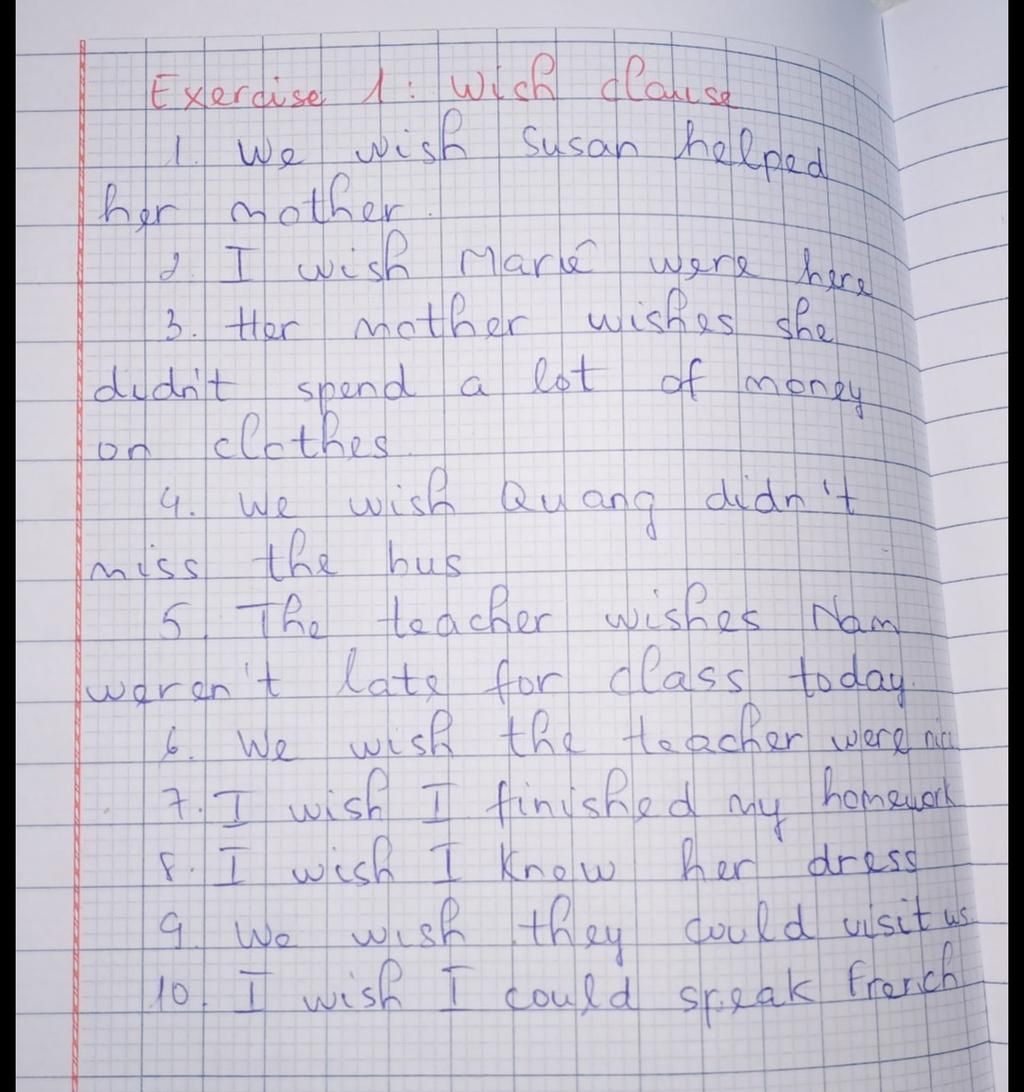 Exercise 1: Wish clause
1. We wish Susan helped
her mother.
2. I wish Marie were here
3. Her mother wishes she
didn't spend a lot of money
on clothes.
4. We wish Quang didn't
miss the bus
5. The teacher wishes Nam
weren't late for class today.
6. We wish the teacher were nice
7. I wish I finished my homework
8. I wish I know her dress
9. We wish they could visit us.
10. I wish I could speak French